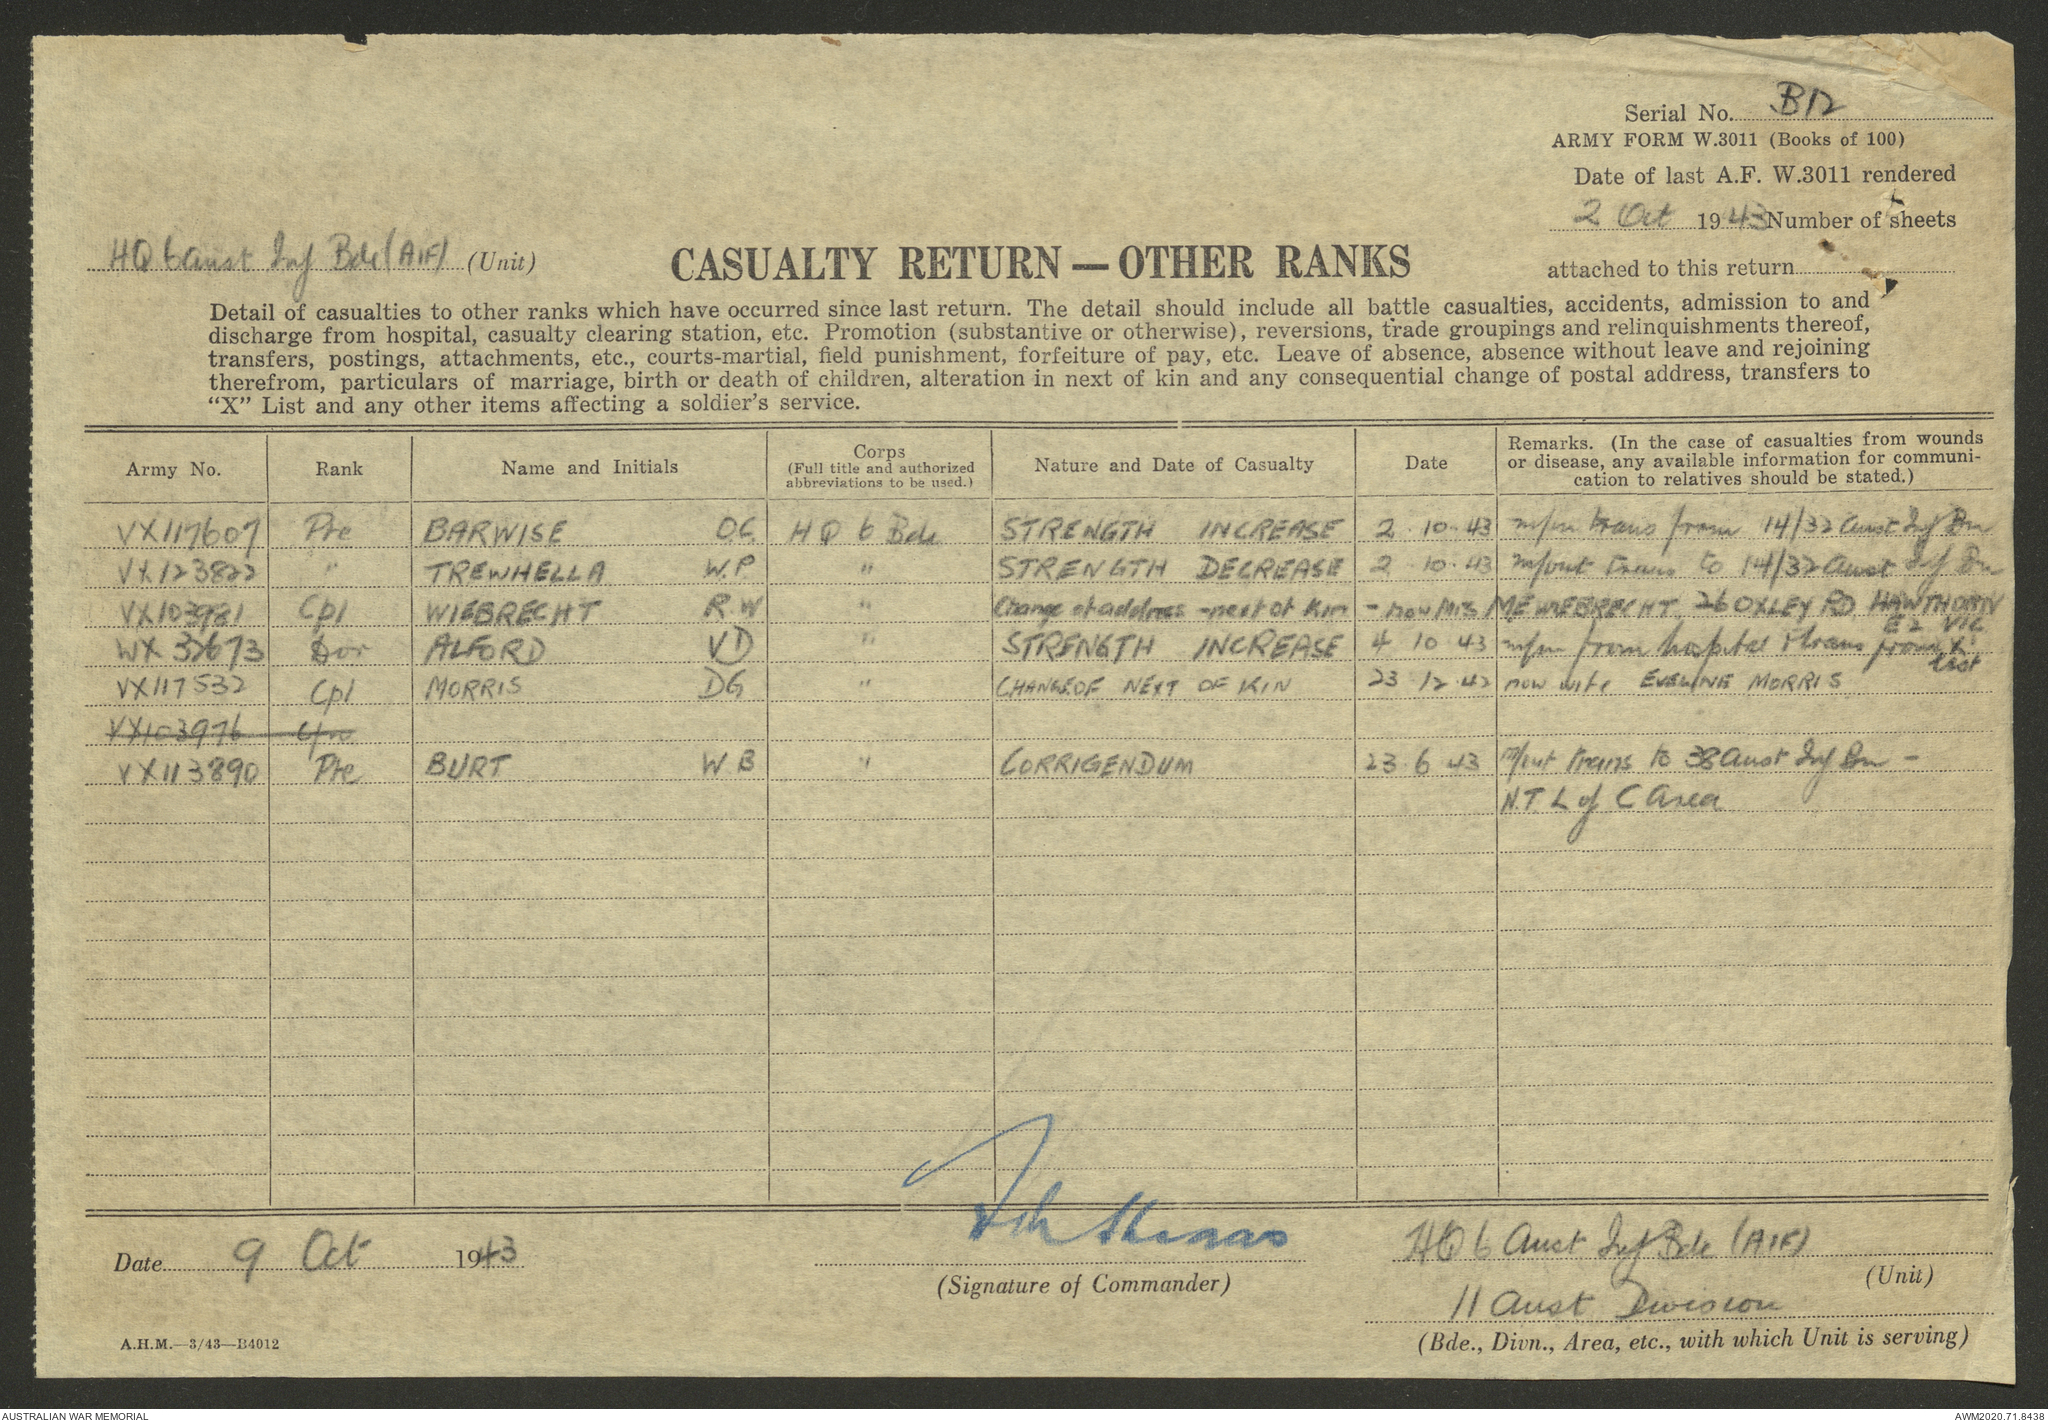 Serial No. B12
ARMY FORM W.3011 (Books of 100)
Date of last A.F. W.3011 rendered
2 Oct 1943 Number of sheets
attached to this return
HQ 6 Aust Inf Bde (AIF) (Unit)
CASUALTY RETURN — OTHER RANKS
Detail of casualties to other ranks which have occurred since last return. The detail should include all battle casualties, accidents, admission to and
discharge from hospital, casualty clearing station, etc. Promotion (substantive or otherwise), reversions, trade groupings and relinquishments thereof,
transfers, postings, attachments, etc., courts-martial, field punishment, forfeiture of pay, etc. Leave of absence, absence without leave and rejoining
therefrom, particulars of marriage, birth or death of children, alteration in next of kin and any consequential change of postal address, transfers to
"X" List and any other items affecting a soldier's service.
Army No. Rank Name and Initials Corps (Full title and authorized abbreviations to be used.) Nature and Date of Casualty Date Remarks. (In the case of casualties from wounds or disease, any available information for communication to relatives should be stated.)
VX117607 Pte BARWISE O.C. HQ 6 Bde STRENGTH INCREASE 2.10.43 m/in trans from 14/32 Aust Inf Bn
VX123822 " TREWHELLA W.P " STRENGTH DECREASE 2.10.43 m/out trans to 14/32 Aust Inf Bn
VX103981 Cpl WIEBRECHT R.W " Change of address - next of Kin - now Mrs M E WIEBRECHT, 26 OXLEY RD HAWTHORN
E2 VIC
WX 32673 ALFORD VD " STRENGTH INCREASE 4 10 43 m/in from hospital & trans from X
list
VX117532 Cpl MORRIS DG CHANGE OF NEXT OF KIN 23 12 42 now wife EVELINE MORRIS
VX103976
VX113890 Pte BURT W B " CORRIGENDUM 23.6.43 m/out trans to 38 Aust Inf Bn -
N.T L of C Area
Date 9 Oct 1943
(Signature of Commander)
HQ 6 Aust Inf Bde (AIF)
(Unit)
11 Aust Division
(Bde., Divn., Area, etc., with which Unit is serving)
A.H.M.—3/43—B4012
AUSTRALIAN WAR MEMORIAL
AWM2020.71.8438